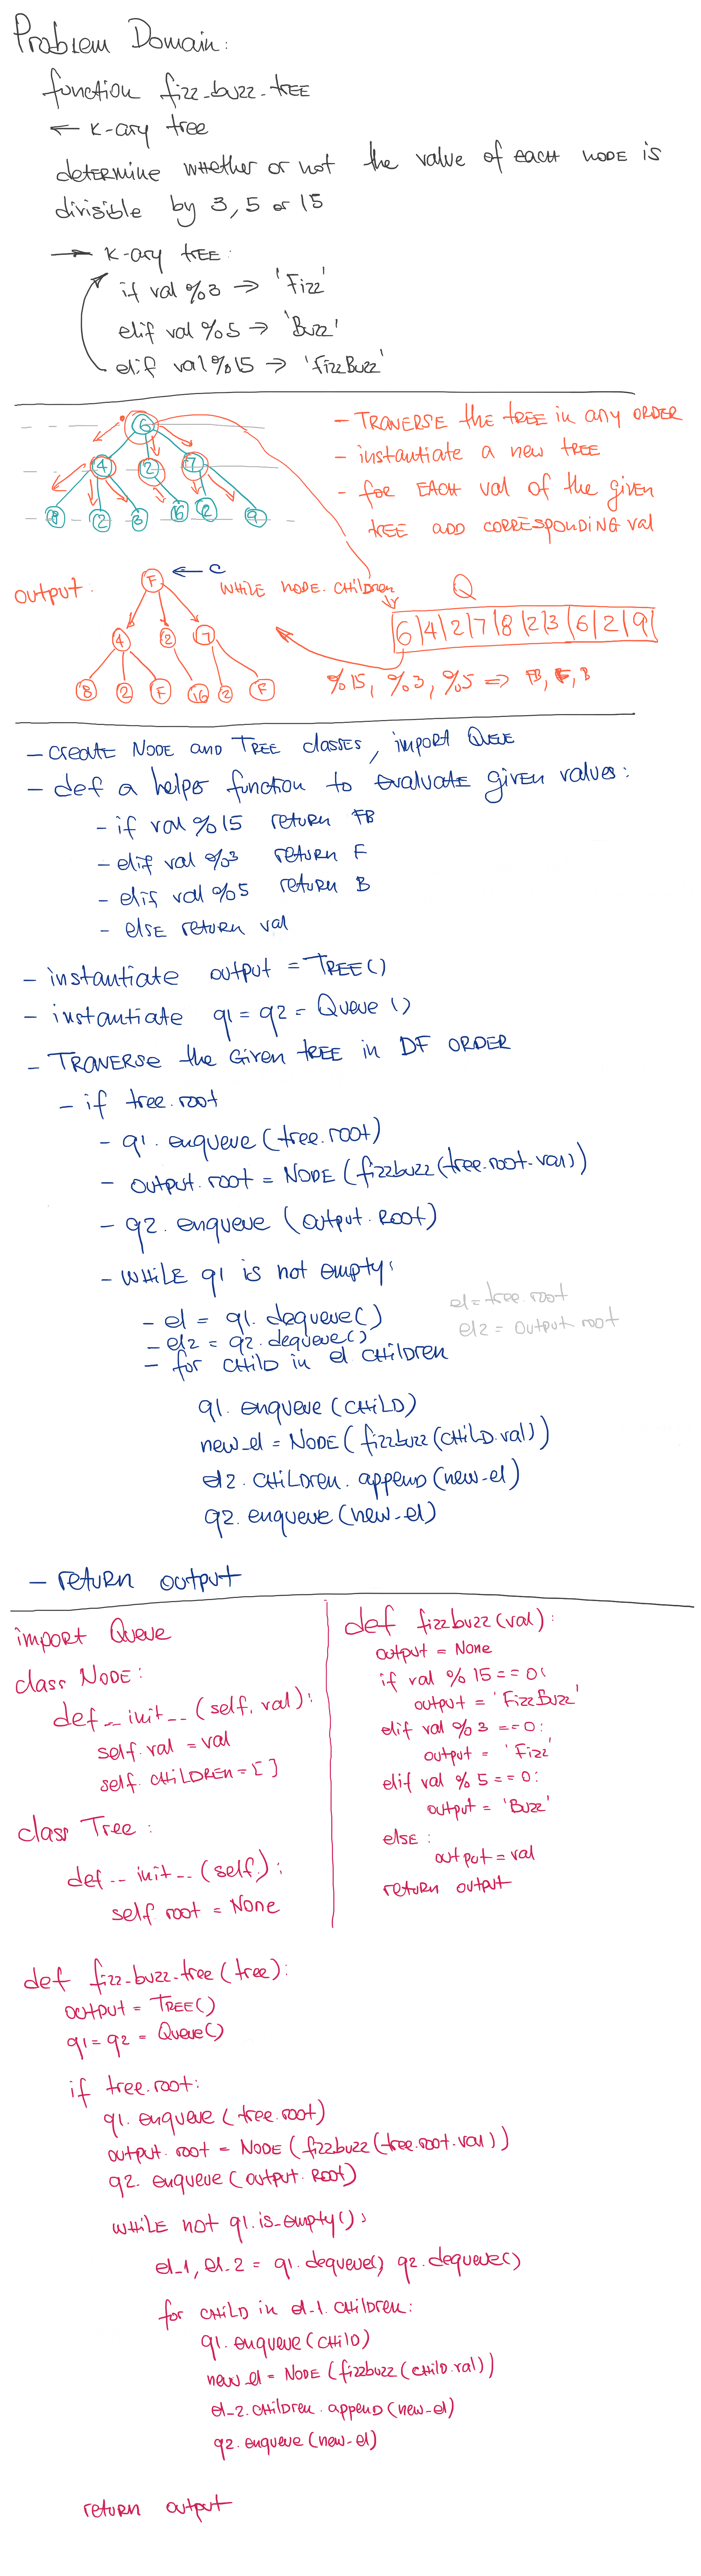 Problem Domain:
function fizz_buzz_tree
← k-ary tree
determine whether or not the value of each node is
divisible by 3, 5 or 15
→ k-ary tree:
if val %3 → 'Fizz'
elif val %5 → 'Buzz'
elif val %15 → 'FizzBuzz'
6
4 2 7
8 2 3 16 2 9
- Traverse the tree in any order
- instantiate a new tree
- for each val of the given
tree add corresponding val
output.
F ← C
4 2 7
8 2 F 16 2 F
while node.children
Q
6|4|2|7|8|2|3|6|2|9|
%15, %3, %5 ⇒ FB, F, B
- create Node and Tree classes, import Queue
- def a helper function to evaluate given values:
- if val %15 return FB
- elif val %3 return F
- elif val %5 return B
- else return val
- instantiate output = Tree()
- instantiate q1 = q2 = Queue()
- Traverse the given tree in DF order
- if tree.root
- q1.enqueue(tree.root)
- output.root = Node(fizzbuzz(tree.root.val))
- q2.enqueue(output.root)
- while q1 is not empty:
- el = q1.dequeue()
- el2 = q2.dequeue()
- for child in el.children
el = tree.root
el2 = output root
q1.enqueue(child)
new_el = Node(fizzbuzz(child.val))
el2.children.append(new_el)
q2.enqueue(new_el)
- return output
import Queue
class Node:
def __init__(self, val):
self.val = val
self.children = []
class Tree:
def __init__(self):
self root = None
def fizzbuzz(val):
output = None
if val % 15 == 0:
output = 'FizzBuzz'
elif val % 3 == 0:
output = 'Fizz'
elif val % 5 == 0:
output = 'Buzz'
else:
output = val
return output
def fizz_buzz_tree(tree):
output = Tree()
q1 = q2 = Queue()
if tree.root:
q1.enqueue(tree.root)
output.root = Node(fizzbuzz(tree.root.val))
q2.enqueue(output.root)
while not q1.is_empty():
el_1, el_2 = q1.dequeue(), q2.dequeue()
for child in el_1.children:
q1.enqueue(child)
new_el = Node(fizzbuzz(child.val))
el_2.children.append(new_el)
q2.enqueue(new_el)
return output